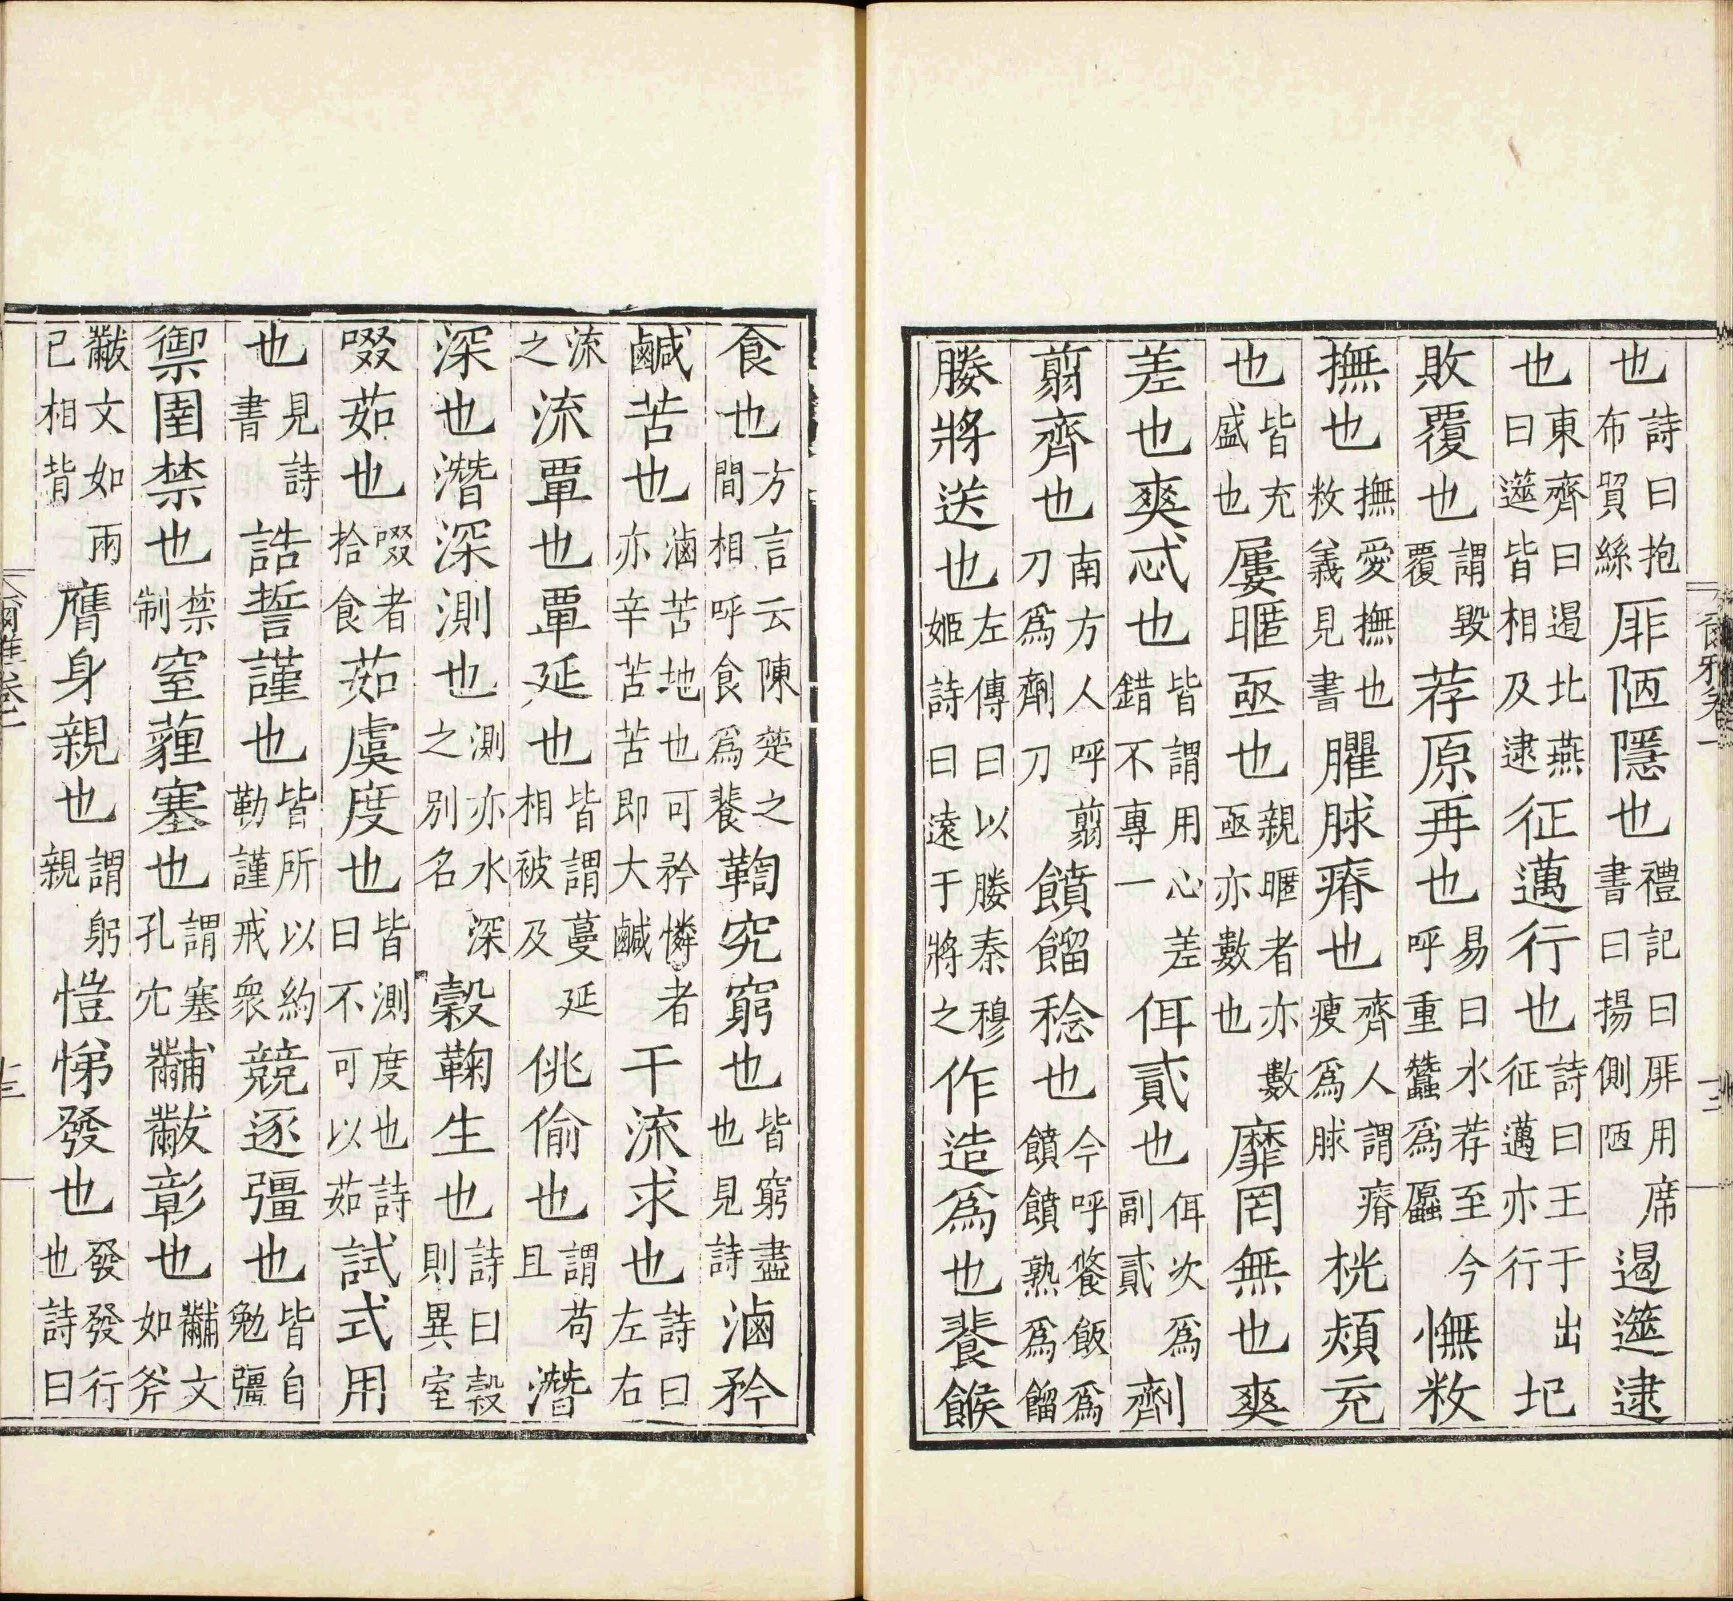 爾雅卷一
十二
也詩曰抱布貿絲厞陋隱也禮記曰厞用席書曰揚側陋遏遾逮
也東齊曰遏北燕曰遾皆相及逮征邁行也詩曰王于出征邁亦行圮
敗覆也謂毀覆荐原再也易曰水荐至今呼重蠶爲𧕎憮敉
撫也撫愛撫也敉義見書臞脙瘠也齊人謂瘠瘦爲脙桄熲充
也皆充盛也屢暱亟也親暱者亦數亟亦數也靡罔無也爽
差也爽忒也皆謂用心差錯不專一佴貳也佴次爲副貳劑
翦齊也南方人呼翦刀爲劑刀饙餾稔也今呼餐飯爲饙饙熟爲餾
媵將送也左傳曰以媵秦穆姬詩曰遠于將之作造爲也餥餱
食也方言云陳楚之間相呼食爲餥鞫究窮也皆窮盡也見詩滷矜
鹹苦也滷苦地也可矜憐者亦辛苦苦即大鹹干流求也詩曰左右
流之流覃也覃延也皆謂蔓延相被及佻偷也謂苟且潛
深也潛深測也測亦水深之別名穀鞠生也詩曰穀則異室
啜茹也啜者拾食茹虞度也皆測度也詩曰不可以茹試式用
也見詩書誥誓謹也皆所以約勒謹戒衆競逐彊也皆自勉彊
禦圉禁也禁制窒薶塞也謂塞孔穴黼黻彰也黼文如斧
黻文如兩已相背膺身親也謂躬親愷悌發也發發行也詩曰
爾雅卷一
十三